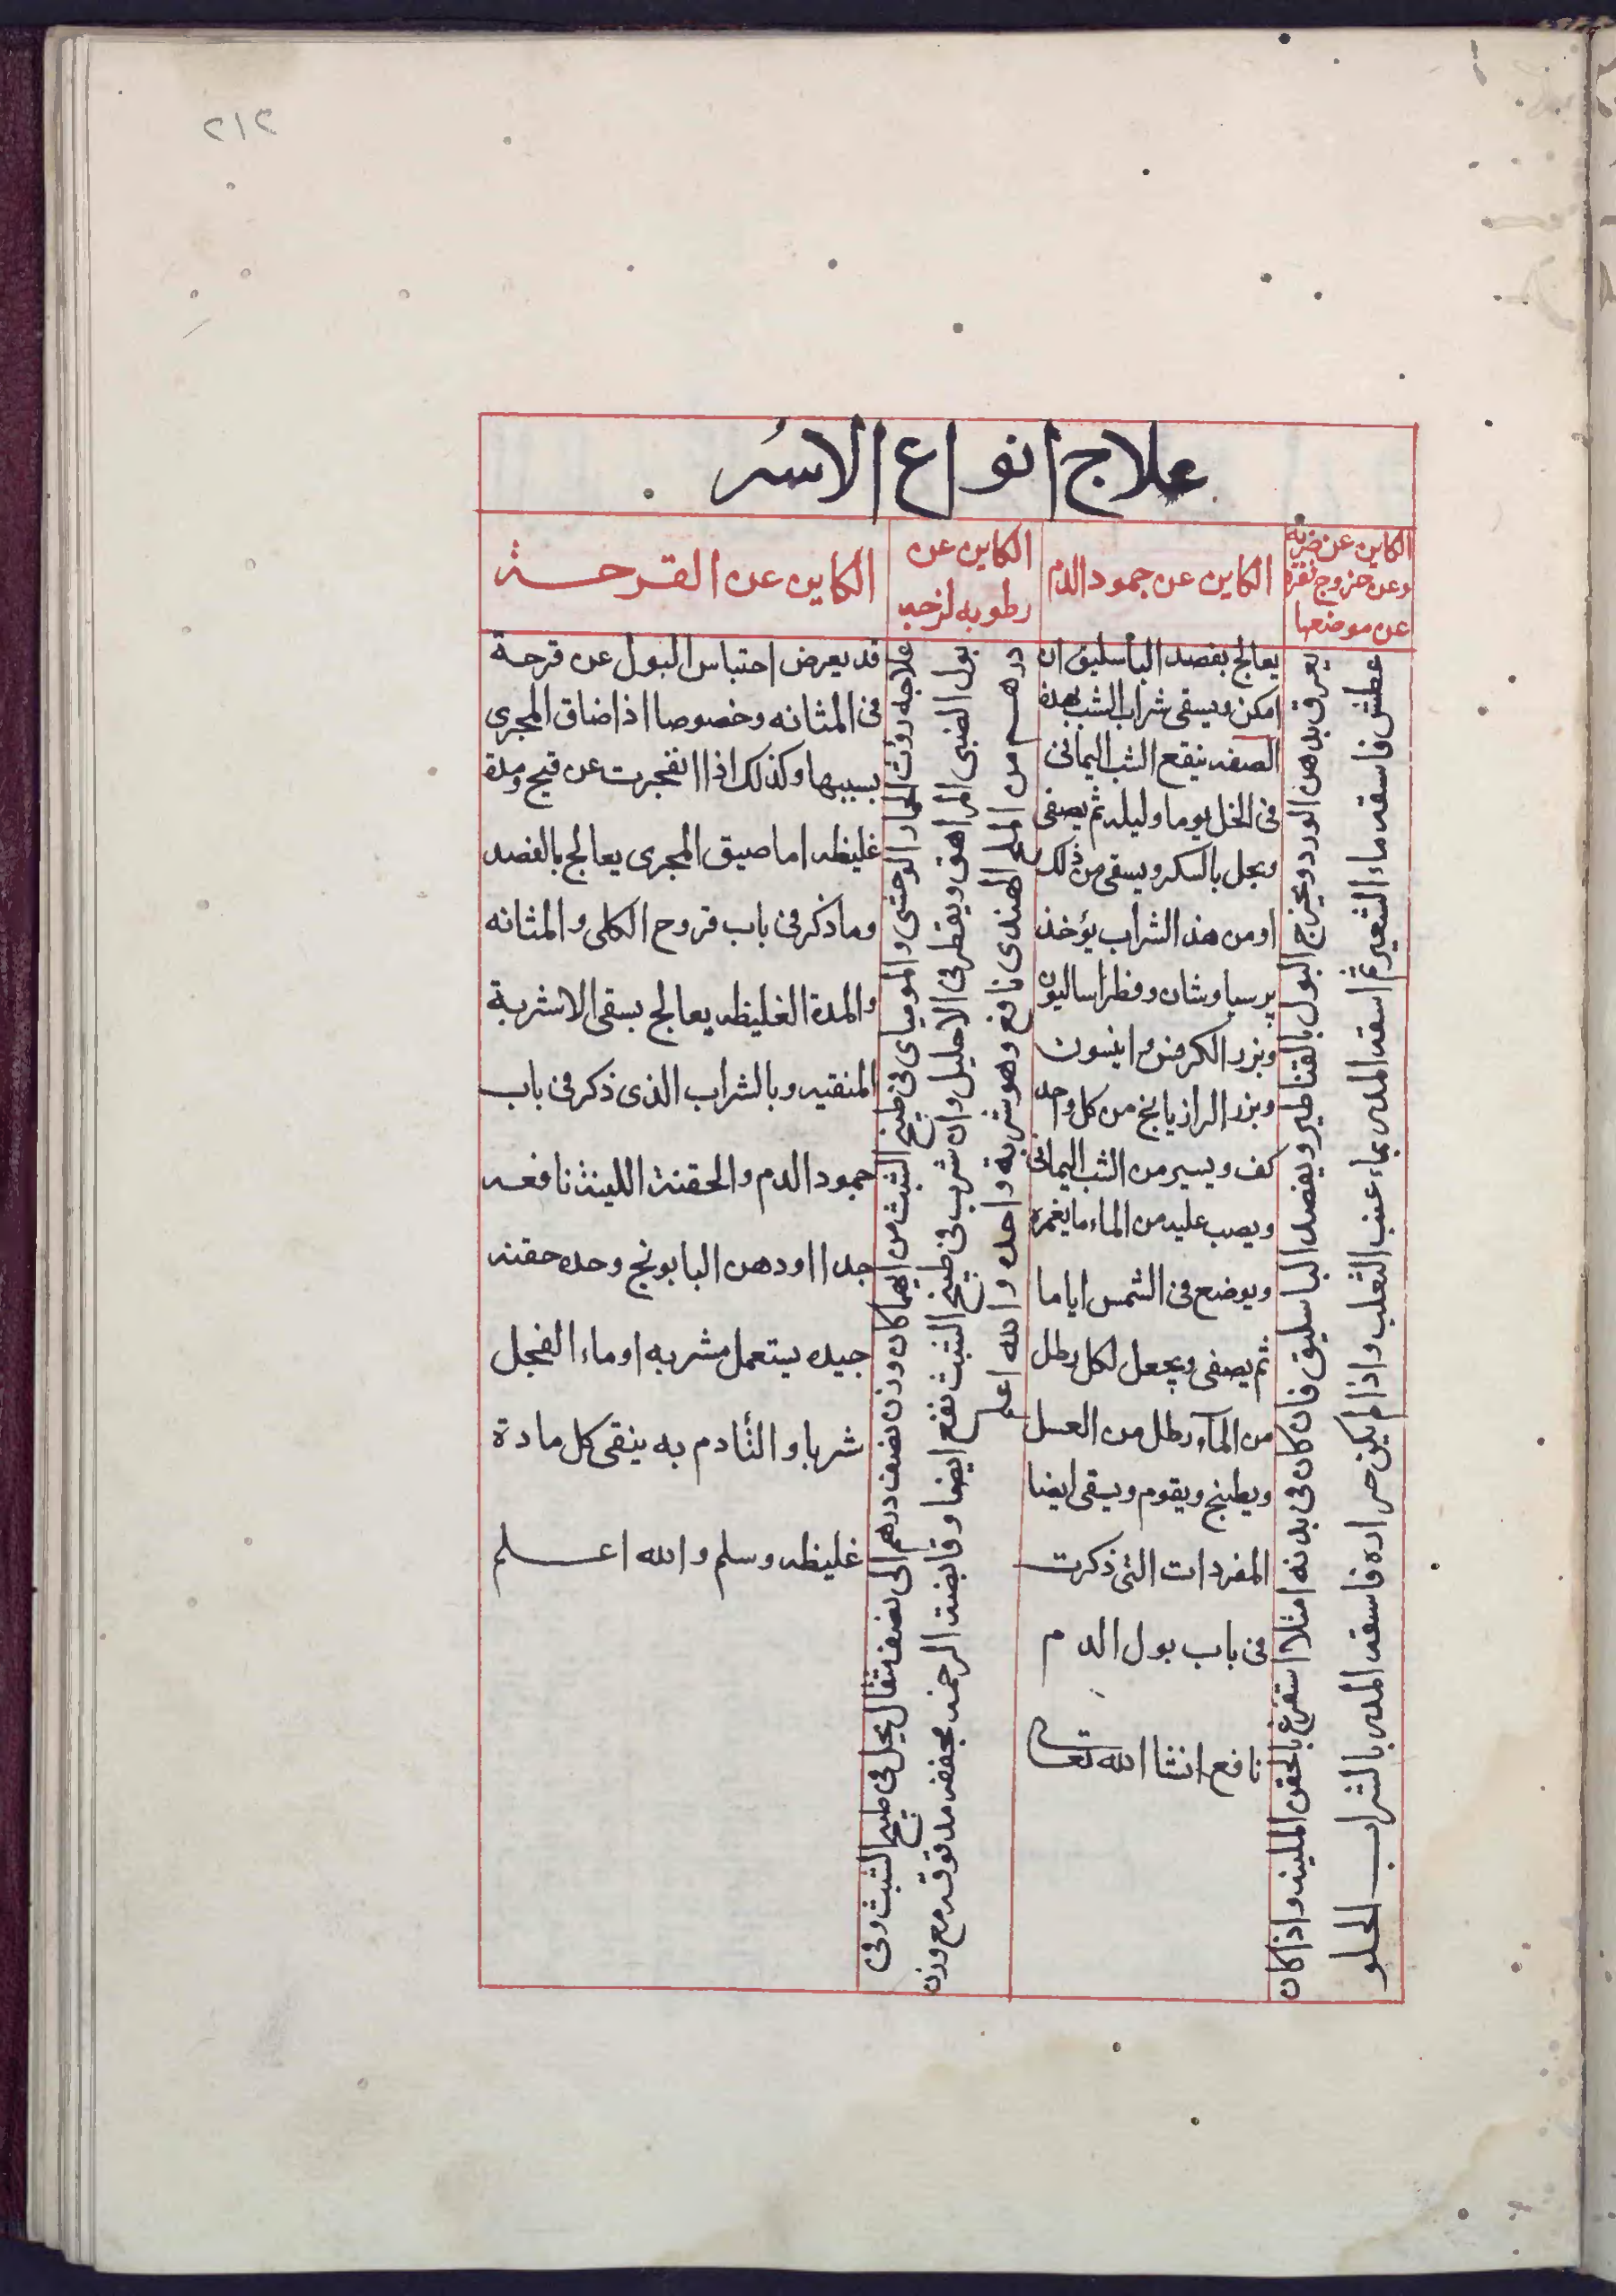 ٢١٢
علاج انواع الاسُر
الكاين عن ضربه
وعن خروج نقره
عن موضعها
الكاين عن جمود الدم
الكاين عن
رطوبه لزجه
الكاين عن القرحة
يعرق بدهن الورد ويخرج البول بالقثاطير ويفصد الباسليق فان كان فى بدنه امتلا استفرغ بالحقن اللينه واذا كان
عطش فاسقه ماء الشعير ثم اسقه المدر بماء عنب الثعلب واذا لم يكن حراره فاسقه المدر بالشراب الحلو
يعالج بفصد الباسليق ان
امكن ويسقى شراب الشب بهذه
الصفه ينقع الشب اليمانى
فى الخل يوما وليله ثم يصفى
ويحل بالسكر ويسقى من ذلك
او من هذ الشراب يؤخذ
برسياوشان وفطراساليون
وبزر الكرفس وانيسون
وبزر الرازيانج من كل واحد
كف ويسير من الشب اليمانى
ويصب عليه من الماء ما يغمره
ويوضع فى الشمس اياما
ثم يصفى ويجعل لكل رطل
من الماء رطل من العسل
ويطبخ ويقوم ويسقى ايضا
المفردات التى ذكرت
فى باب بول الدم
نافع انشا الله تعالى
علاجه روث الحمار الوحشى والموميا فى طبيخ الشبث من ايهما كان وزن نصف درهم الى نصف مثقال يحل فى طبيخ الشبث وفى
بول الصبى المراهق ويقطر فى الاحليل وان شرب فى طبيخ الشبث نفع ايضا وقابضة الرخمه مجففه مدقوقه مع وزن
درهم من الملح الهندى نافع وهو شربة واحده والله اعلم
قد يعرض احتباس البول عن قرحة
فى المثانه وخصوصا اذا ضاق المجرى
بسببها وكذلك اذا انفجرت عن قيح ومدة
غليظه اما ضيق المجرى يعالج بالفصد
وما ذكر فى باب قروح الكلى والمثانه
والمدة الغليظه يعالج بسقى الاشربة
المنقيه وبالشراب الذى ذكر فى باب
جمود الدم والحقنة اللينة نافعه
جدا او دهن البابونج وحده حقنه
جيده يستعمل مشربه او ماء الفجل
شربا والتادم به ينقى كل مادة
غليظه وسلم والله اعلم